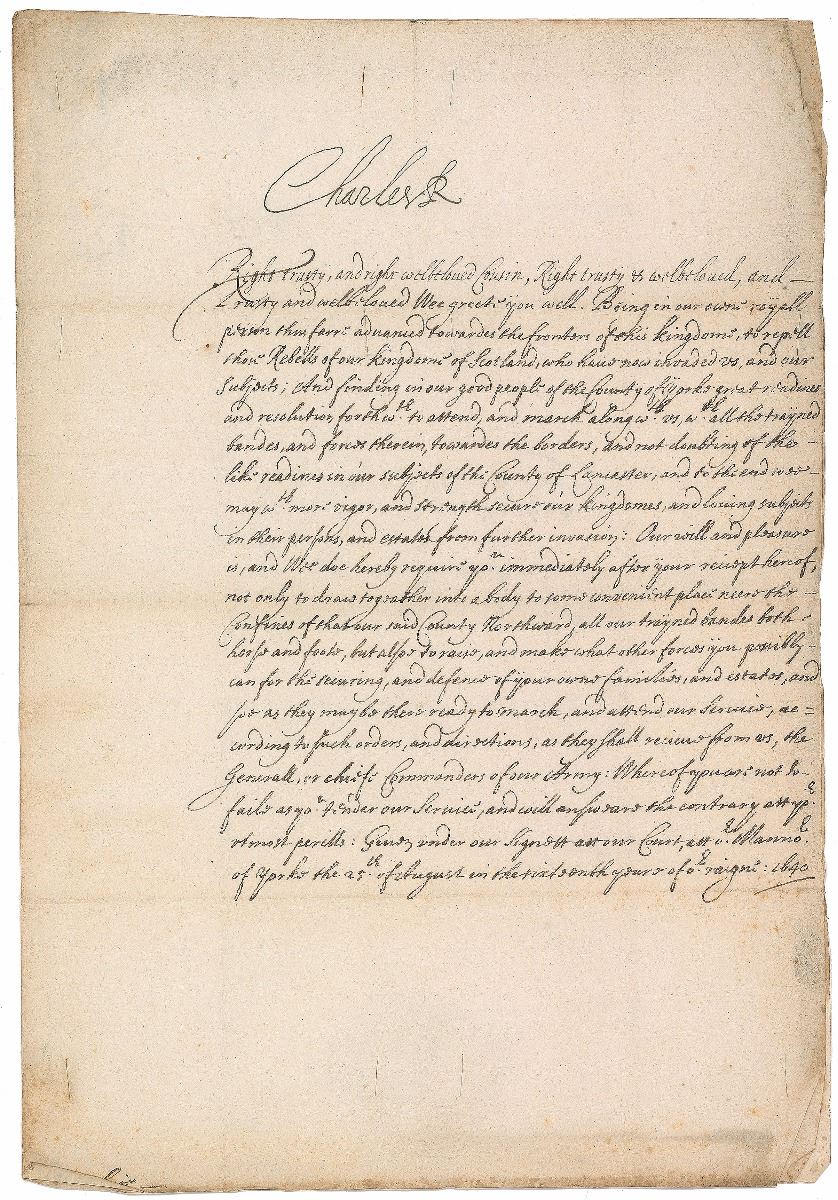 Charles R
Right trusty, and right welbeloved Cousin, Right trusty & welbeloued, and —
trusty and welbeloued Wee greete you well. Being in our owne royall
person thus farre aduanced towardes the fronters of this kingdome, to repell
those Rebells of our kingdome of Scotland, who haue now inuaded vs, and our
Subjects; And finding in our good people of the County of Yorke great readines
and resolution forthwth to attend, and march along wth vs, wth all the trayned
bandes, and forces therein, towardes the borders, and not doubting of the —
like readines in our subjects of the County of Lancaster, and to the end wee —
may wth more vigor, and strength secure our kingdomes, and louing subjects
in their persons, and estates from further invasion: Our will and pleasure
is, and Wee doe hereby require you immediately after your receipt hereof,
not only to draw togeather into a body to some convenient place neere the —
Confines of that our said County Northward, all our trayned bandes both —
horse and foote, but also to raise, and make what other forces you possibly —
can for the securing, and defence of your owne families, and estates, and
soe as they may be there ready to march, and attend our Service, ac=
cording to such orders, and directions, as they shall receiue from vs, the
Generall, or chiefe Commanders of our Army: Whereof you are not to
faile as you tender our Service, and will answeare the contrary att yor
vtmost perills: Given vnder our Signett att our Court att or Mannor
of Yorke the 25th of August in the sixteenth yeare of or raigne: 1640